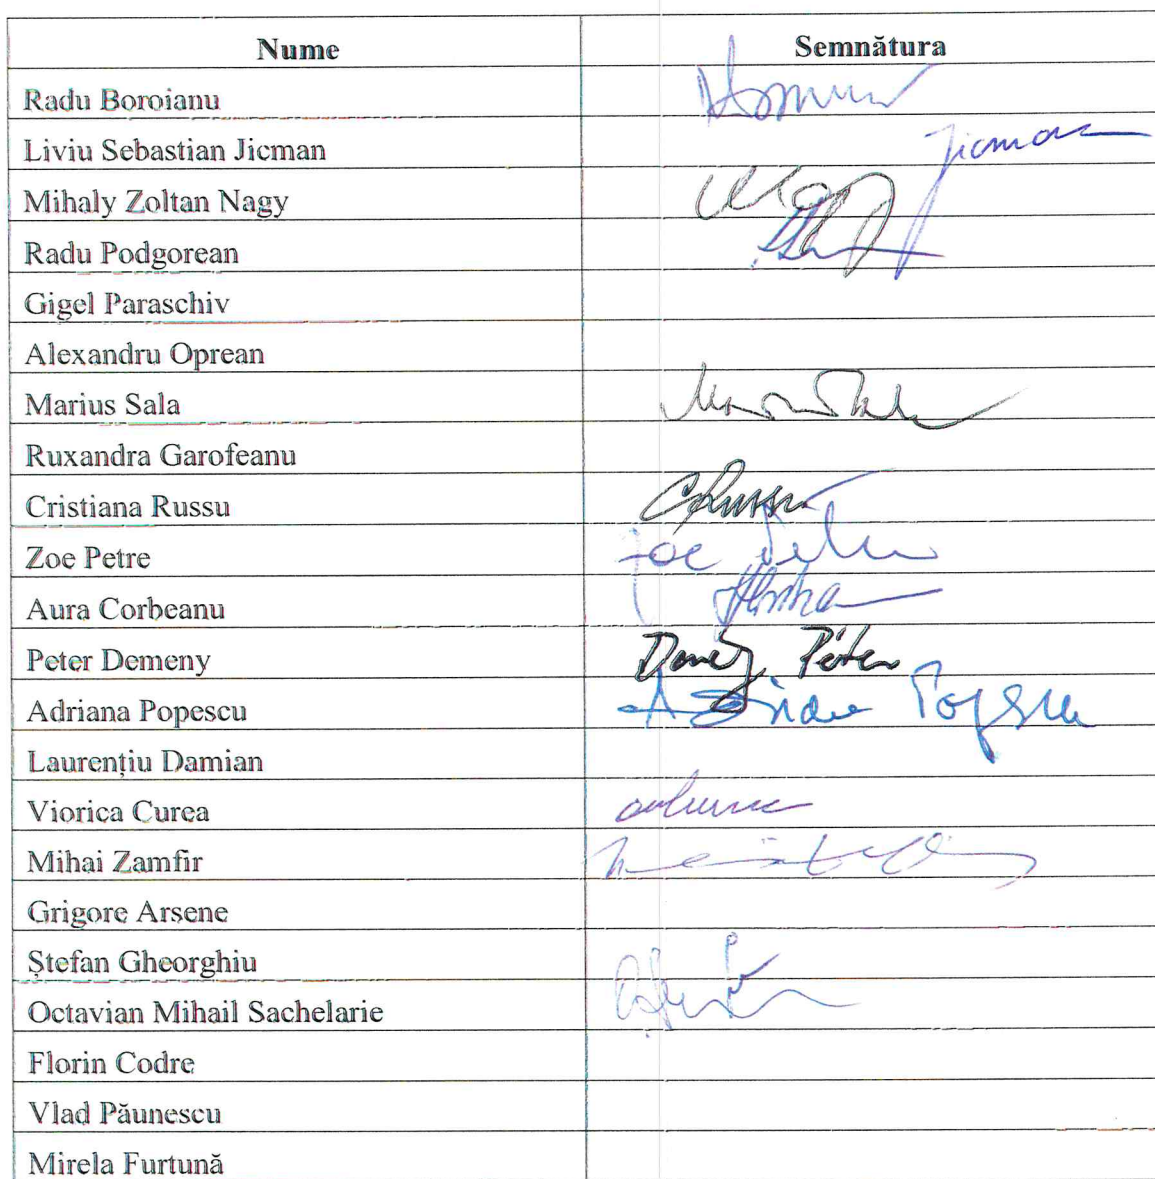 Nume Semnătura
Radu Boroianu
Liviu Sebastian Jicman Jicman
Mihaly Zoltan Nagy
Radu Podgorean
Gigel Paraschiv
Alexandru Oprean
Marius Sala
Ruxandra Garofeanu
Cristiana Russu CRussu
Zoe Petre Zoe Petre
Aura Corbeanu
Peter Demeny Demény Péter
Adriana Popescu Adriana Popescu
Laurențiu Damian
Viorica Curea
Mihai Zamfir
Grigore Arsene
Ștefan Gheorghiu
Octavian Mihail Sachelarie
Florin Codre
Vlad Păunescu
Mirela Furtună